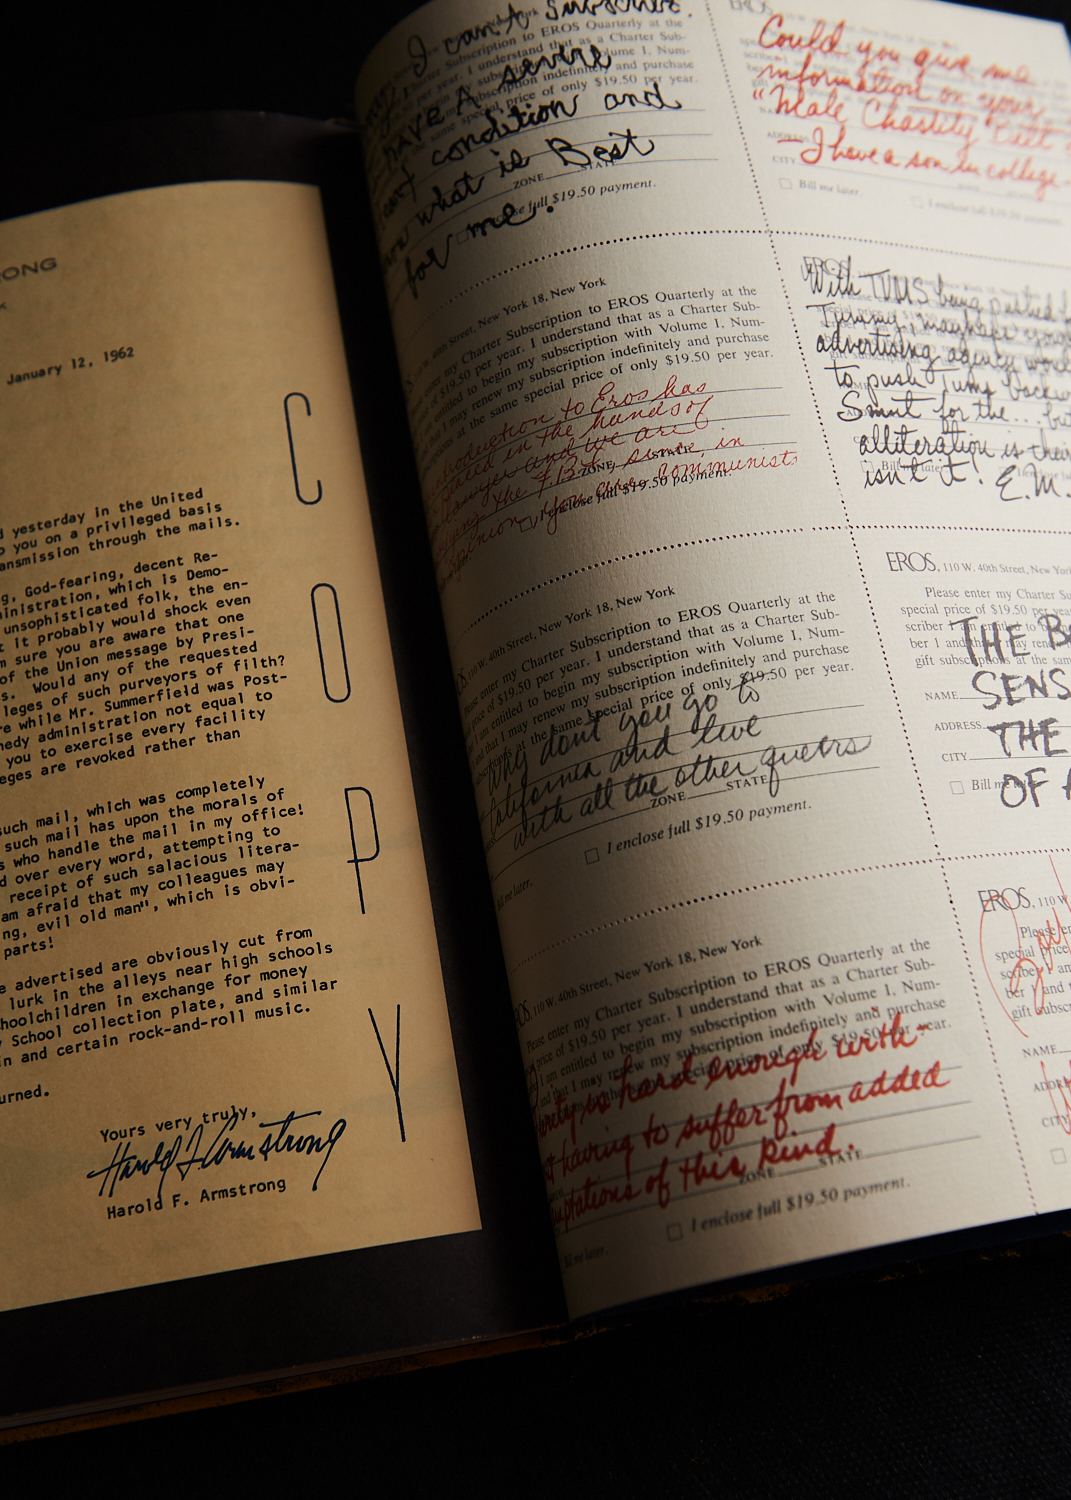 ONG
K
January 12, 1962
C
O
P
Y
d yesterday in the United
o you on a privileged basis
ansmission through the mails.
g, God-fearing, decent Re-
inistration, which is Demo-
unsophisticated folk, the en-
t it probably would shock even
m sure you are aware that one
of the Union message by Presi-
s. Would any of the requested
leges of such purveyors of filth?
re while Mr. Summerfield was Post-
nedy administration not equal to
you to exercise every facility
eges are revoked rather than
such mail, which was completely
such mail has upon the morals of
s who handle the mail in my office!
d over every word, attempting to
receipt of such salacious litera-
am afraid that my colleagues may
ng, evil old man", which is obvi-
parts!
e advertised are obviously cut from
lurk in the alleys near high schools
hoolchildren in exchange for money
y School collection plate, and similar
in and certain rock-and-roll music.
urned.
Yours very truly,
Harold F. Armstrong
Harold F. Armstrong
I can't subscribe.
Subscription to EROS Quarterly at the
per year. I understand that as a Charter Sub-
Volume I, Num-
subscription indefinitely and purchase
special price of only $19.50 per year.
I have A severe
condition and
can't
what is Best
for me.
ZONE STATE
enclose full $19.50 payment.
Could you give me
information on your
"Male Chastity Belt"
- I have a son in college -
CITY
Bill me later.
I enclose full $19.50 payment.
40th Street, New York 18, New York
enter my Charter Subscription to EROS Quarterly at the
of $19.50 per year. I understand that as a Charter Sub-
entitled to begin my subscription with Volume I, Num-
that I may renew my subscription indefinitely and purchase
at the same special price of only $19.50 per year.
to Eros has
in the hands of
lawyer and we are
the F.B.I. since, in
opinion you are communists
ZONE STATE
I enclose full $19.50 payment.
EROS
With TUMS being pushed
Tummy, mayhape
advertising agency would
to push Tums
Smut for the... but
alliteration is their
isn't it! E.M.
Bill me later.
110 W. 40th Street, New York 18, New York
Please enter my Charter Subscription to EROS Quarterly at the
price of $19.50 per year. I understand that as a Charter Sub-
I am entitled to begin my subscription with Volume I, Num-
and that I may renew my subscription indefinitely and purchase
at the same special price of only $19.50 per year.
Why don't you go to
California and live
with all the other queers
ZONE STATE
I enclose full $19.50 payment.
Bill me later.
EROS, 110 W. 40th Street, New York
Please enter my Charter Su
special price of $19.50 per year
scriber I am entitled to
ber 1 and that I may rene
gift subscriptions at the sam
NAME
ADDRESS
CITY
Bill me later
THE B
SENS
THE
OF A
110 W. 40th Street, New York 18, New York
Please enter my Charter Subscription to EROS Quarterly at the
price of $19.50 per year. I understand that as a Charter Sub-
I am entitled to begin my subscription with Volume I, Num-
and that I may renew my subscription indefinitely and purchase
at the same special price of only $19.50 per year.
is hard enough with-
out having to suffer from added
temptations of this kind.
ZONE STATE
I enclose full $19.50 payment.
Bill me later.
EROS, 110 W
Please en
special price
scriber I am
ber 1 and t
gift subsc
NAME
ADDR
CITY